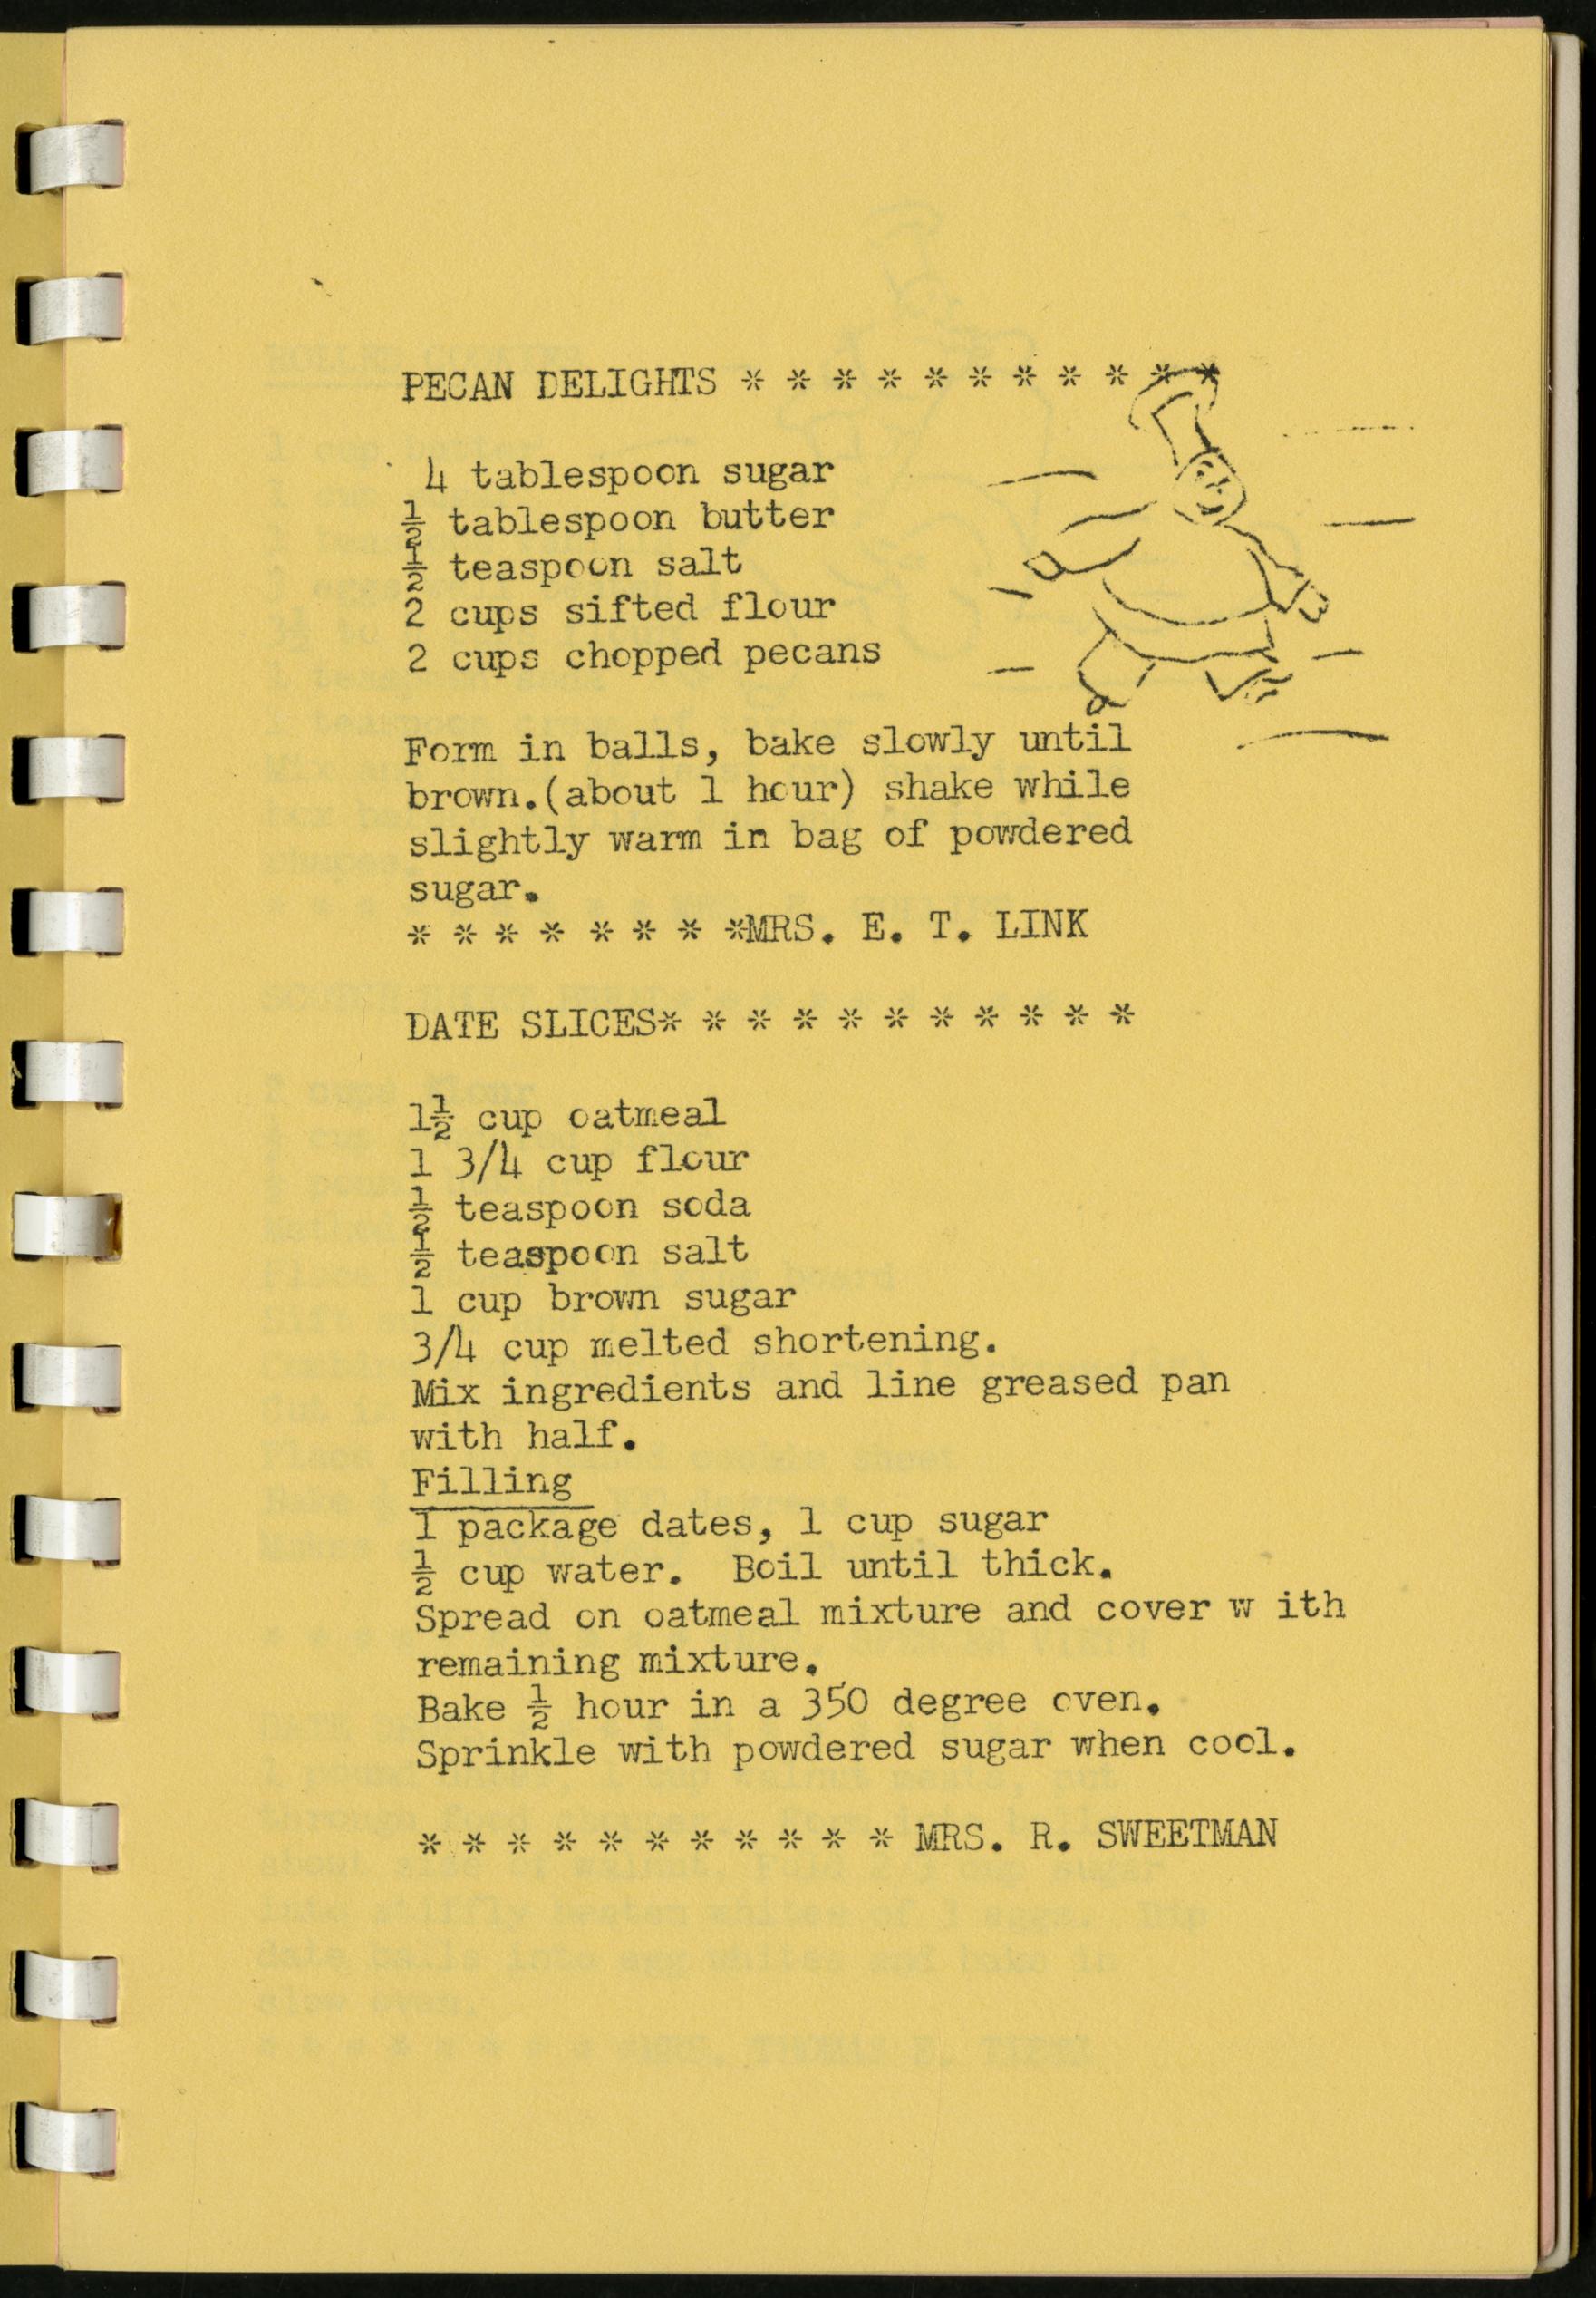 PECAN DELIGHTS * * * * * * * * * * *
4 tablespoon sugar
½ tablespoon butter
½ teaspoon salt
2 cups sifted flour
2 cups chopped pecans
Form in balls, bake slowly until
brown.(about 1 hour) shake while
slightly warm in bag of powdered
sugar.
* * * * * * * *MRS. E. T. LINK
DATE SLICES* * * * * * * * * * *
1½ cup oatmeal
1 3/4 cup flour
½ teaspoon soda
½ teaspoon salt
1 cup brown sugar
3/4 cup melted shortening.
Mix ingredients and line greased pan
with half.
Filling
1 package dates, 1 cup sugar
½ cup water.  Boil until thick.
Spread on oatmeal mixture and cover w ith
remaining mixture.
Bake ½ hour in a 350 degree oven.
Sprinkle with powdered sugar when cool.
* * * * * * * * * * * MRS. R. SWEETMAN